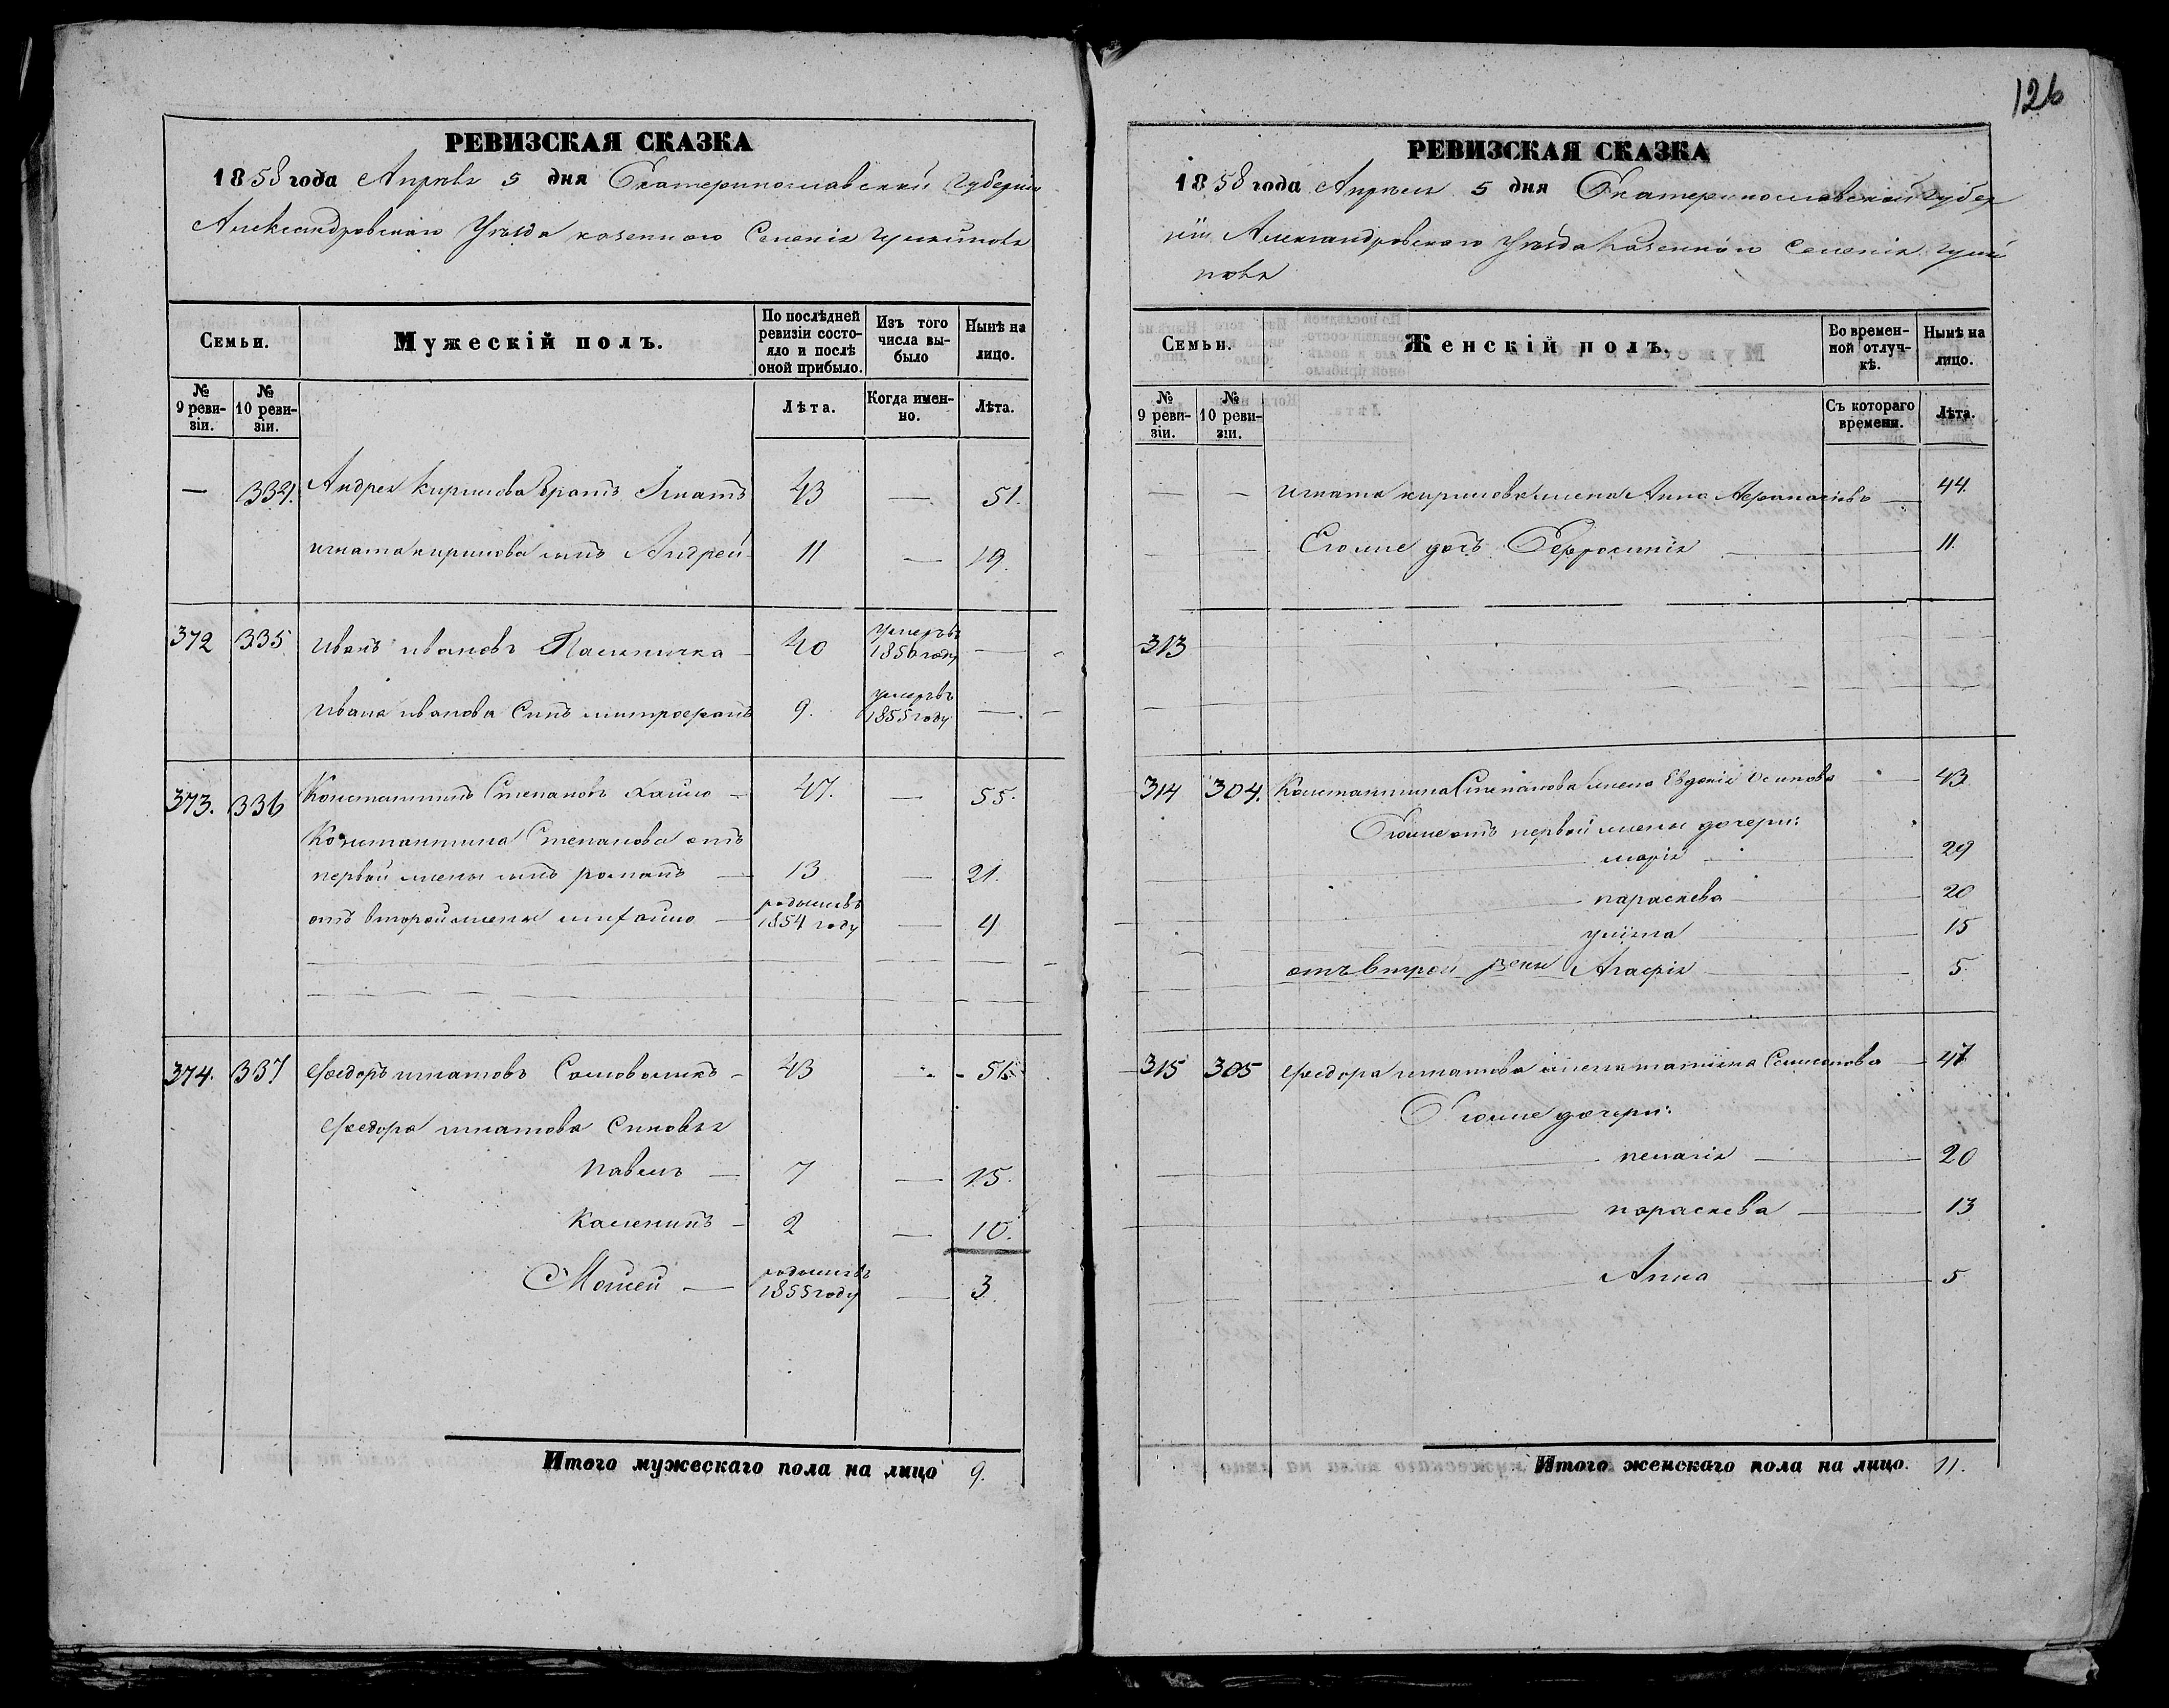 РЕВИЗСКАЯ СКАЗКА
1858 года Апреля 5 дня Екатеринославской Губерніи
Александровскаго Уѣзда казеннаго Селенія
Семьи.
Мужескій полъ.
По послѣдней ревизіи состояло и послѣ оной прибыло.
Изъ того числа выбыло
Нынѣ на лицо.
№ 9 ревизіи.
№ 10 ревизіи.
Лѣта.
Когда именно.
Лѣта.
— 334. Андрея Кирилова Братъ Игнатъ 43 — 51.
Игната Кирилова сынъ Андрей 11 — 19.
372 335 Иванъ Ивановъ 40 умеръ въ 1856 году —
Ивана Иванова Синъ Митрофанъ 9. умеръ въ 1855 году —
373. 336 Константинъ Степановъ 47. — 55.
Константина Степанова отъ
первой жены сынъ романъ — 13 — 21.
отъ второй жены михайло — родился въ 1854 году — 4
374. 337 Федоръ игнатовъ 43 - 51.
Федора игнатова Синовья
Павелъ — 7 — 15.
Каленикъ — 2 — 10.
Моисей — родился въ 1855 году — 3
Итого мужескаго пола на лицо 9.
126
РЕВИЗСКАЯ СКАЗКА
1858 года Апреля 5 дня Екатеринославской Губер
ніи Александровскаго Уѣзда Казеннаго Селенія
Семьи.
Женскій полъ.
Во временной отлучкѣ.
Нынѣ на лицо.
№ 9 ревизіи.
№ 10 ревизіи.
Съ котораго времени.
Лѣта.
— — игната кирилова жена Анна — 44.
Егоже дочь Ефросинія — 11.
313
314 304. Константина Степанова жена Евдокія Осипова — 43
Егоже отъ первой жены дочери:
марія — 29
параскева — 20
уліяна — 15
отъ второй жены Агафія — 5.
315 305 Федора игнатова жена татіяна — 47
Егоже дочери:
пелагія — 20
параскева — 13
Анна — 5
Итого женскаго пола на лицо. 11.